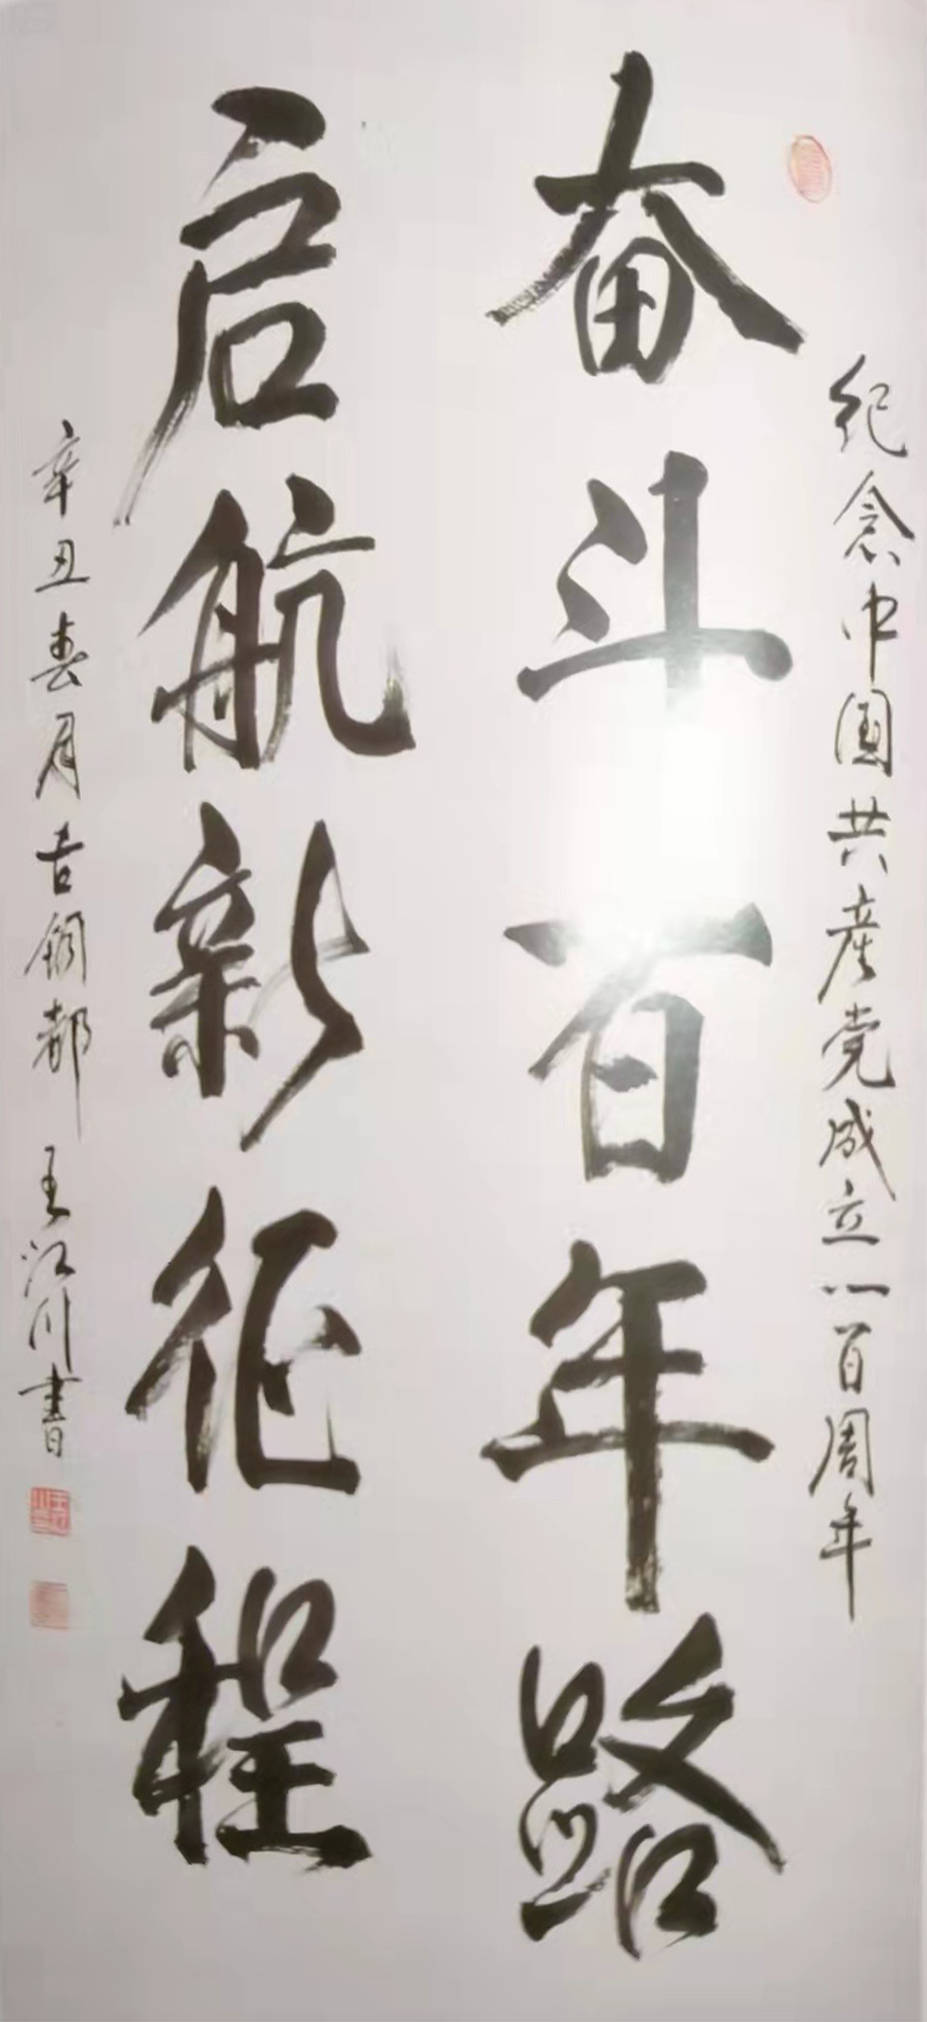 纪念中国共産党成立一百周年
奋斗百年路
启航新征程
辛丑春月古铜都 王江川書